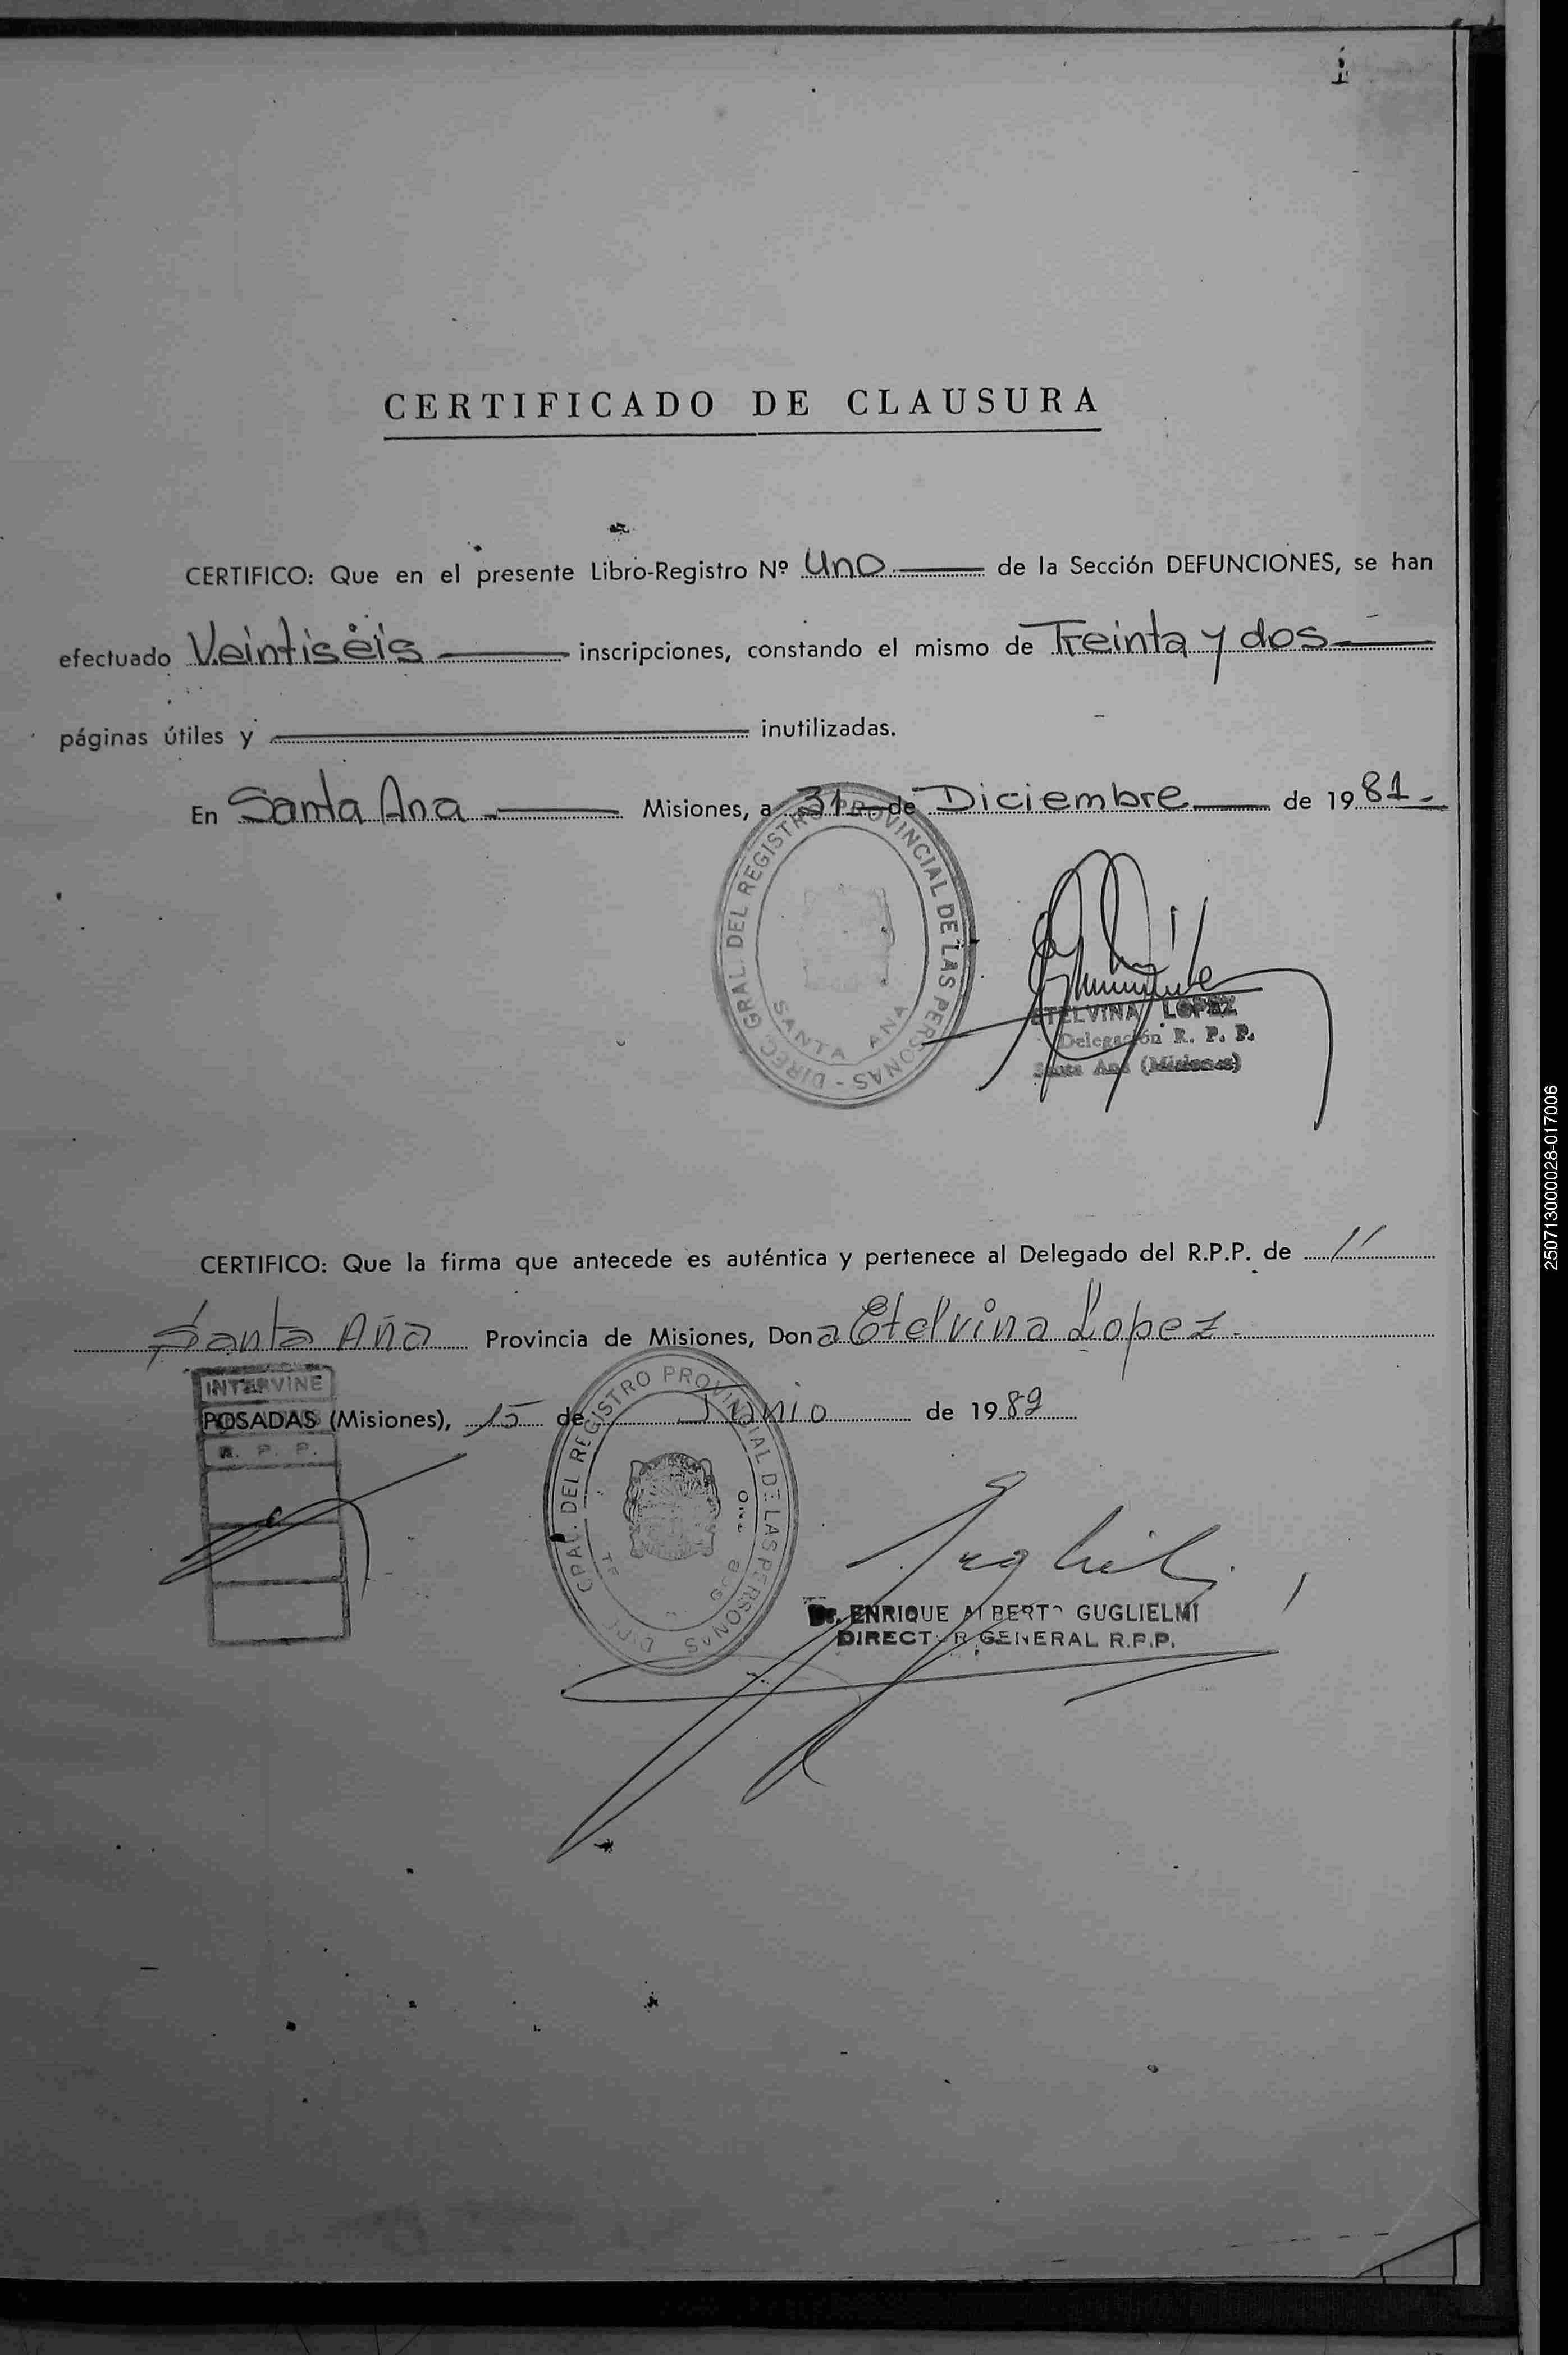 CERTIFICADO DE CLAUSURA
CERTIFICO: Que en el presente Libro-Registro Nº Uno de la Sección DEFUNCIONES, se han
efectuado Veintiséis inscripciones, constando el mismo de Treinta y dos
páginas útiles y inutilizadas.
En Santa Ana Misiones, a 31 de Diciembre de 1981.
DIREC. GRAL. DEL REGISTRO PROVINCIAL DE LAS PERSONAS - SANTA ANA
ETELVINA LOPEZ
Delegación R. P. P.
Santa Ana (Misiones)
CERTIFICO: Que la firma que antecede es auténtica y pertenece al Delegado del R.P.P. de "
Santa Ana Provincia de Misiones, Dona Etelvina Lopez.
INTERVINE
POSADAS (Misiones), 15 de Junio de 1982
R. P. P.
GRAL. DEL REGISTRO PROVINCIAL DE LAS PERSONAS
Dr. ENRIQUE ALBERTO GUGLIELMI
DIRECTOR GENERAL R.P.P.
250713000028-017006